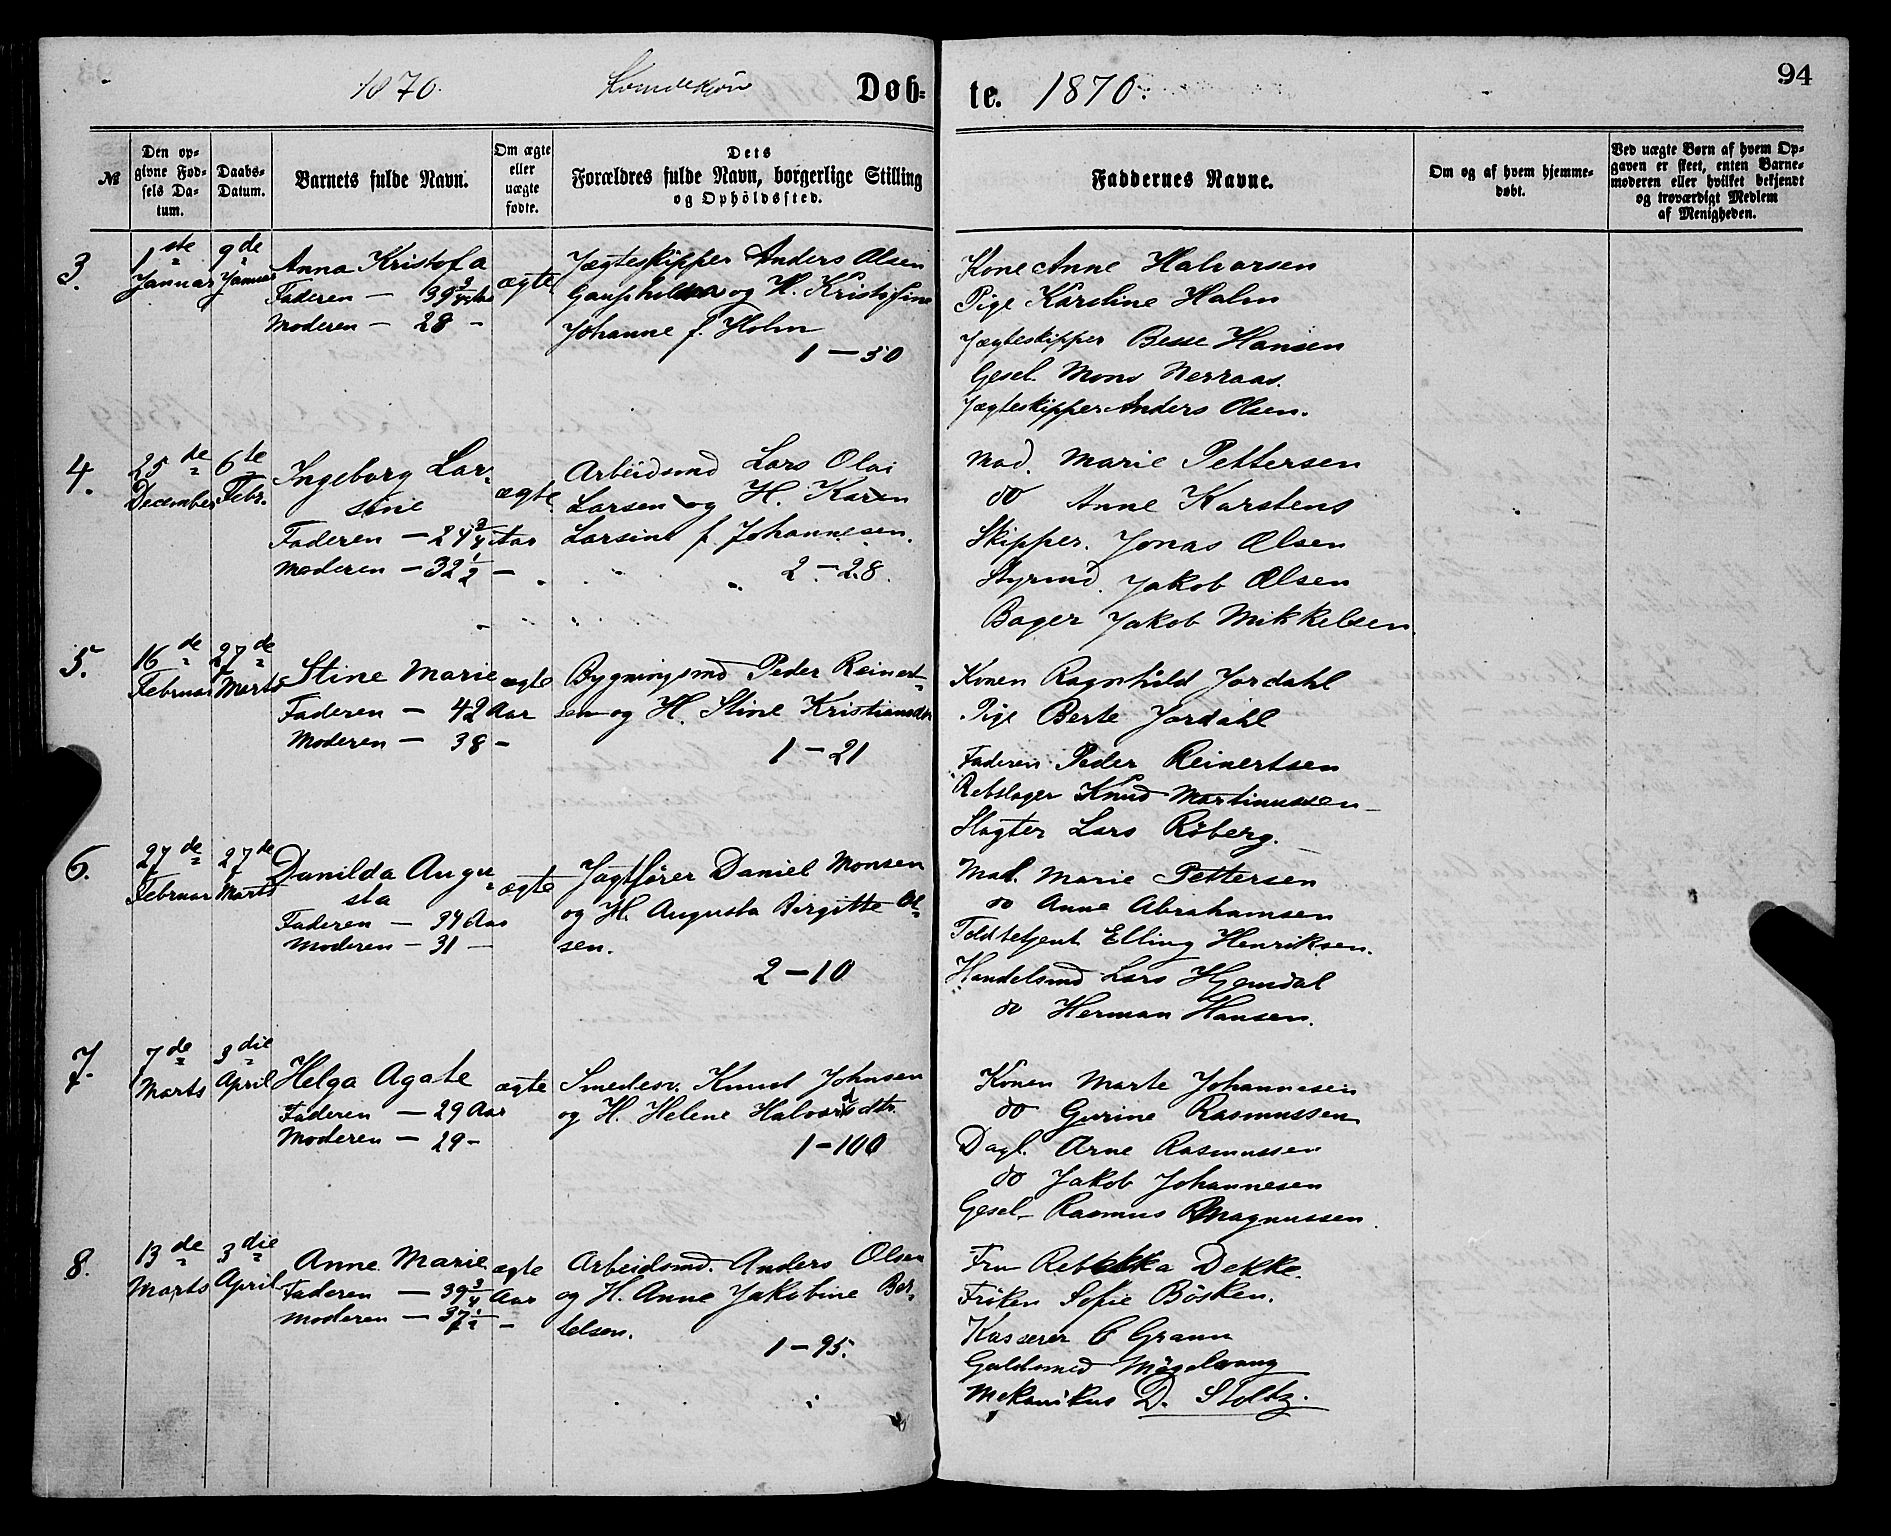 1870. Kvindekjøn Døb-
te. 1870.
94
№
Den op-
givne Fød-
sels Da-
tum.
Daabs-
Datum.
Barnets fulde Navn.
Om ægte
eller
uægte
fødte.
Dets
Forældres fulde Navn, borgerlige Stilling
og Ophöldssted.
Faddernes Navne.
Om og af hvem hjemme-
døbt.
Ved uægte Børn af hvem Op-
gaven er skeet, enten Barne-
moderen eller hvilket bekjendt
og troværdigt Medlem
af Menigheden.
3.
1ste
Januar
9de
Januar
Anna Kristofa
Faderen — 39 3/4 Aar
Moderen — 28 –
ægte
Jægteskipper Anders Olsen
og H. Kristofine
Johanne f. Holm
1 — 50
Kone Anne Halvorsen
Pige Karoline Holm
Jægteskipper Besse Hansen
Gesel. Mons Nerraas.
Jægteskipper Anders Olsen.
4.
25de
December
6te
Febr.
Ingeborg Lar-
sine
Faderen — 24 3/4 Aar
Moderen — 32 1/2 –
ægte
Arbeidsmd Lars Olai
Larsen og H. Karen
Larsine f. Johannesen.
2 — 28.
Mad. Marie Pettersen
do Anne Karstens
Skipper. Jonas Olsen
Styrmd. Jakob Olsen
Bager Jakob Mikkelsen.
5.
16de
Februar
27de
Marts
Stine Marie
Faderen — 42 Aar
Moderen — 38 –
ægte
Bygningsmd Peder Reinert-
sen og H. Stine Kristiansdtr
1 — 21
Konen Ragnhild Jordahl
Pige Berte Jordahl
Faderen Peder Reinertsen
Rebslager Knud Martinussen
Slagter Lars Röberg.
6.
27de
Februar
27de
Marts
Danilda Augu-
sta
Faderen — 34 Aar
Moderen — 31 —
ægte
Jagtfører Daniel Monsen
og H. Augusta Birgitte Ol-
sen.
2 — 10
Mad. Marie Pettersen
do Anne Abrahamsen
Toldbetjent Elling Henriksen.
Handelsmd Lars Hjemdal
do Herman Hansen.
7.
7de
Marts
3die
April
Helga Agate
Faderen — 29 Aar
Moderen — 29 –
ægte
Smedesv. Knud Johnsen
og H. Helene Halvorsdtr.
1 — 100
Konen Marte Johannesen
do Gurine Rasmussen
Dagl. Arne Rasmussen
do Jakob Johannesen
Gesel – Rasmus Magnussen.
8.
13de
Marts
3die
April
Anne Marie
Faderen — 39 3/4 Aar
Moderen — 37 1/2 –
ægte
Arbeidsmd. Anders Olsen
og H. Anne Jakobine Ber-
telsen.
1 — 95.
Fru Rebekka Dekke.
Fröken Sofie Bösken.
Kasserer C Grann
Guldsmed Mögelvang
Mekanikus D. Stoltz.